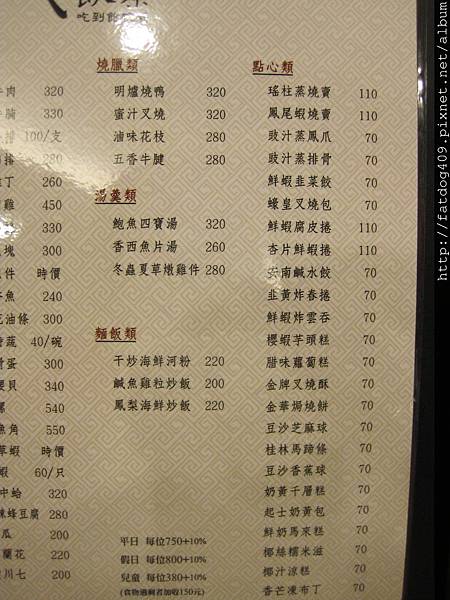 吃到飽
燒臘類
明爐燒鴨 320
蜜汁叉燒 320
滷味花枝 280
五香牛腱 280
湯羹類
鮑魚四寶湯 320
香西魚片湯 260
冬蟲夏草燉雞件 280
麵飯類
干炒海鮮河粉 220
鹹魚雞粒炒飯 200
鳳梨海鮮炒飯 220
平日 每位750+10%
假日 每位800+10%
兒童 每位380+10%
(食物過剩者加收150元)
點心類
瑤柱蒸燒賣 110
鳳尾蝦燒賣 110
豉汁蒸鳳爪 70
豉汁蒸排骨 70
鮮蝦韭菜餃 70
蠔皇叉燒包 70
鮮蝦腐皮捲 110
杏片鮮蝦捲 110
安南鹹水餃 70
韭黃炸春捲 70
鮮蝦炸雲吞 70
櫻蝦芋頭糕 70
腊味蘿蔔糕 70
金牌叉燒酥 70
金華焗燒餅 70
豆沙芝麻球 70
桂林馬蹄條 70
豆沙香蕉球 70
奶黃千層糕 70
起士奶黃包 70
鮮奶馬來糕 70
椰絲糯米滋 70
椰汁涼糕 70
香芒凍布丁 70
肉 320
330
100/支
280
丁 260
雞 450
330
塊 300
件 時價
魚 240
油條 300
蔬 40/碗
蛋 300
貝 340
540
魚角 550
草蝦 時價
蝦 60/只
中蛤 320
蜂豆腐 280
瓜 200
蘭花 220
川七 200
http://fatdog409.pixnet.net/album